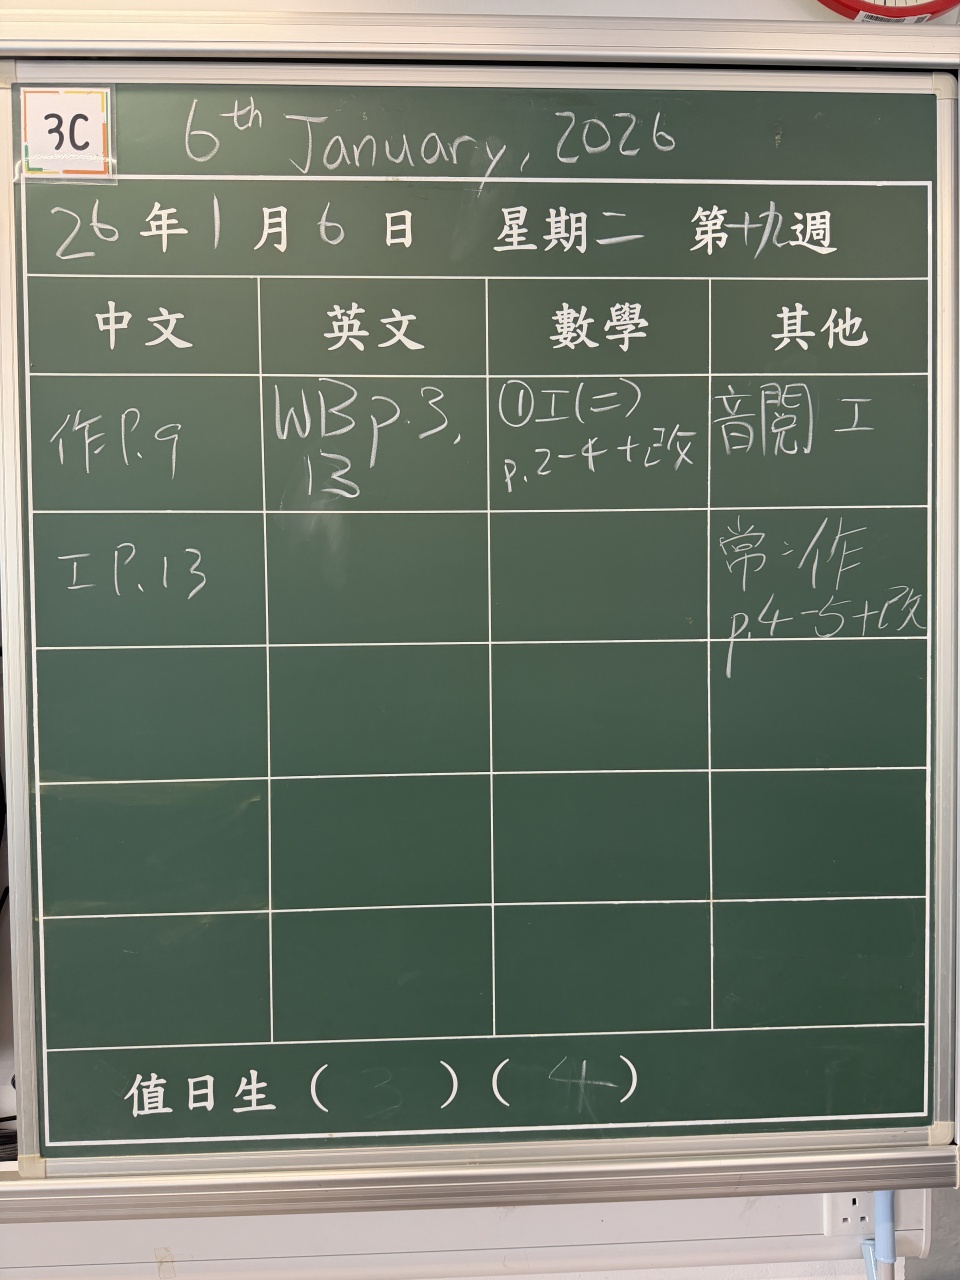 3C
6th January, 2026
26年1月6日 星期二 第十九週
中文 英文 數學 其他
作P.9
WB p.3,
13
①工(二)
p.2-4+改
音閱 工
工P.13
常:作
p.4-5+改
值日生 ( 3 ) ( 4 )